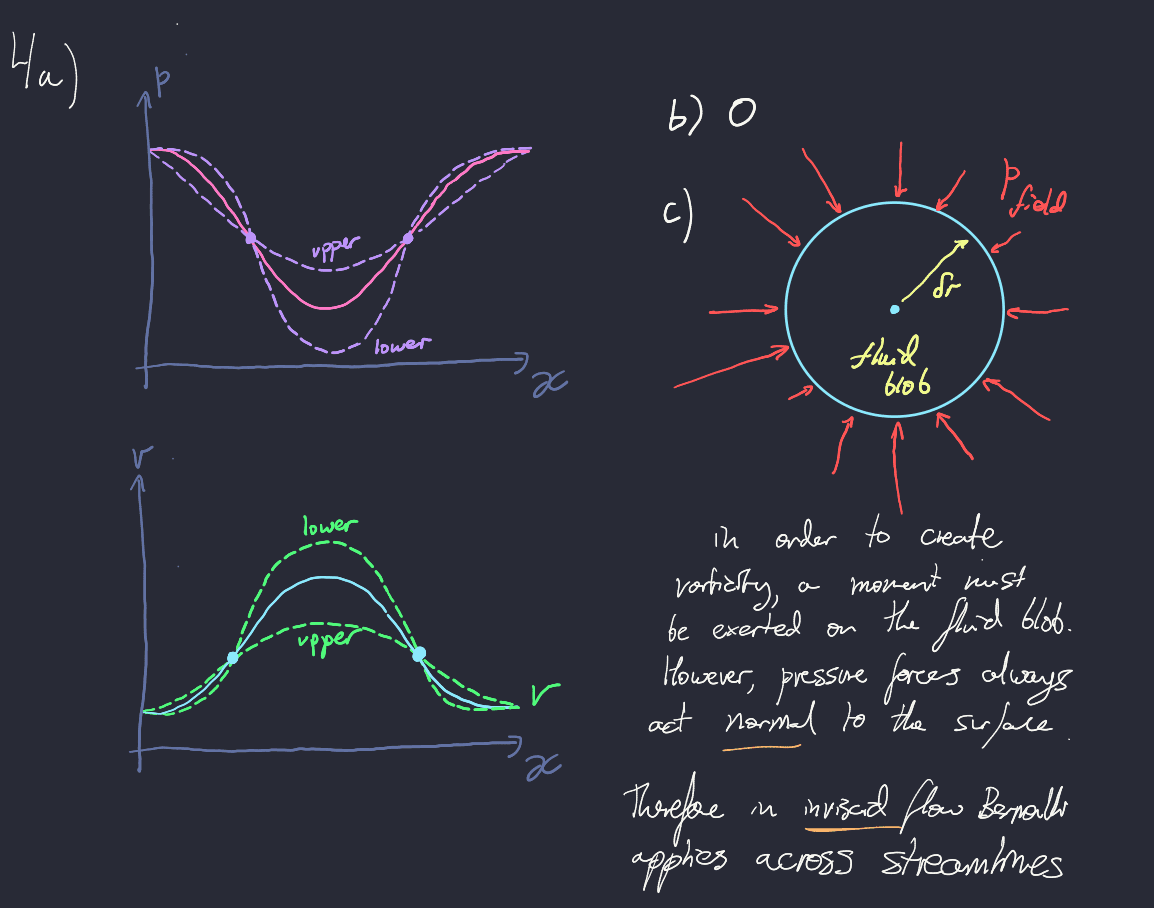 4a)
p
upper
lower
x
v
lower
upper
V
x
b) 0
c)
p field
δr
fluid
blob
in order to create
vorticity, a moment must
be exerted on the fluid blob.
However, pressure forces always
act normal to the surface.
Therefore in inviscid flow Bernoulli
applies across streamlines